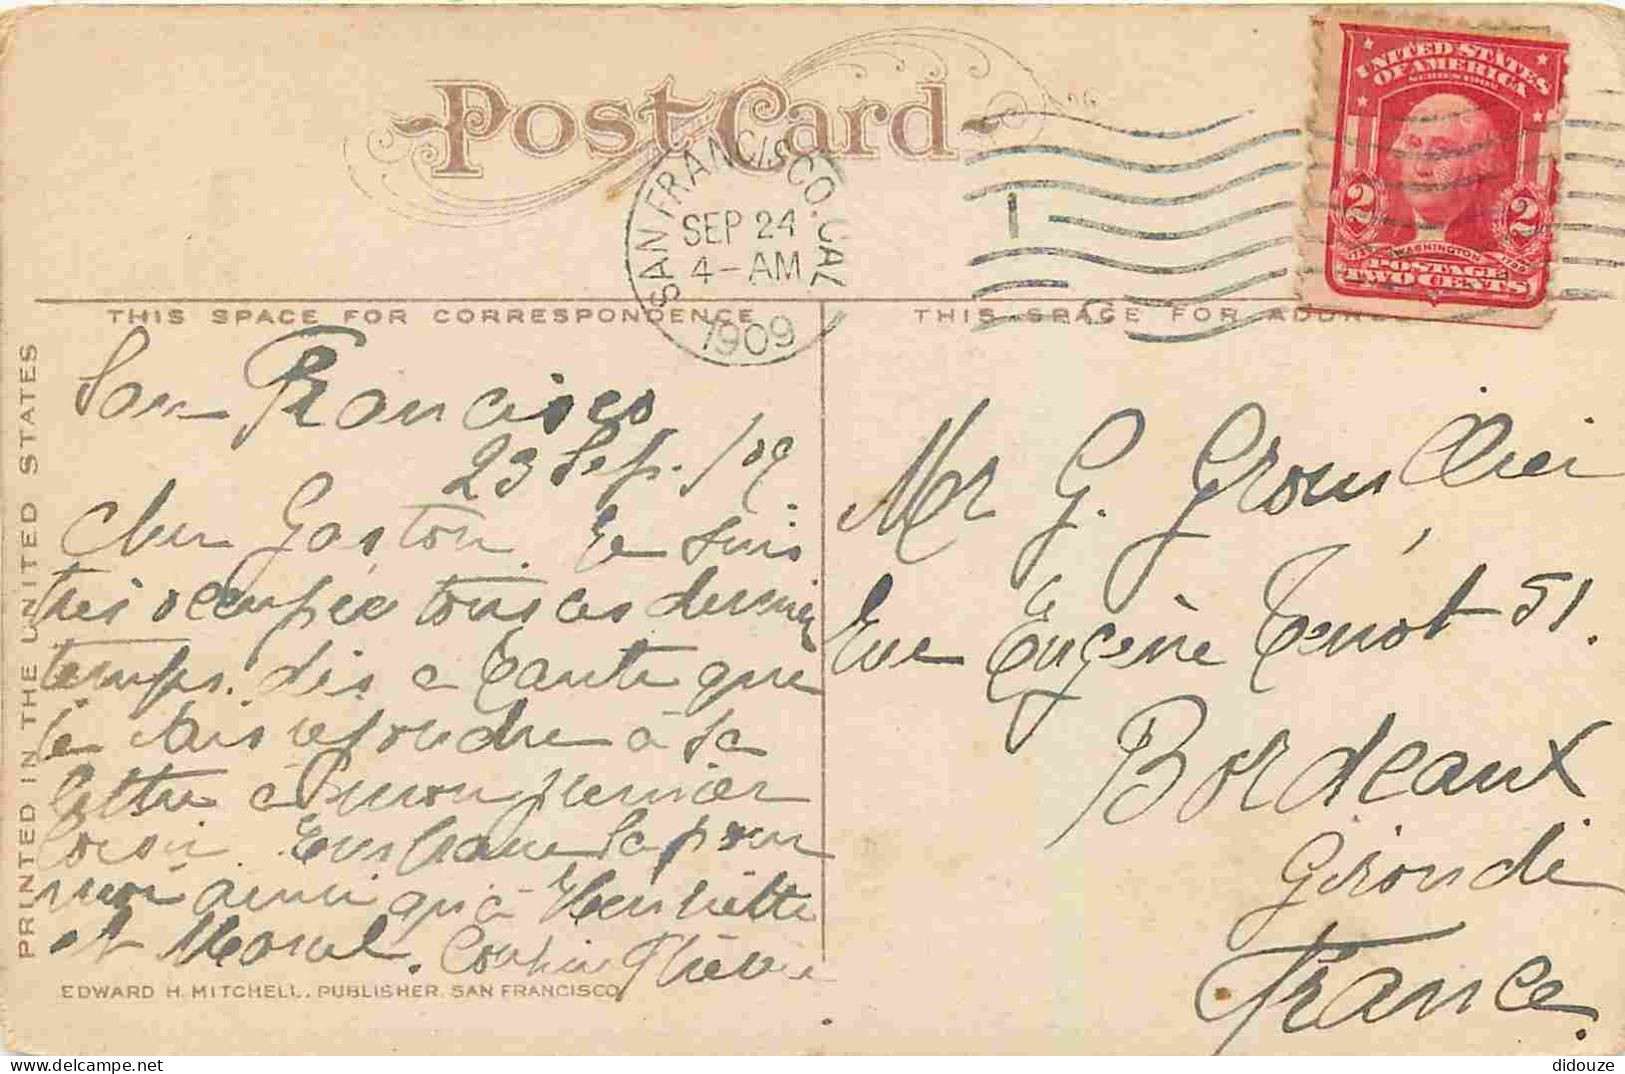 Post Card
SAN FRANCISCO. CAL
SEP 24
4-AM
1909
1
UNITED STATES
OF AMERICA
SERIES 1902
2 2
WASHINGTON
1732 1799
POSTAGE
TWO CENTS
THIS SPACE FOR CORRESPONDENCE
THIS SPACE FOR ADDRESS
PRINTED IN THE UNITED STATES
San Francisco
23 Sep. /09
Cher Gaston Je suis
très occupée tous ces derniers
temps. dis a Tante que
je vais repondre à sa
lettre à mon premier
loisir. Embrasse la pour
moi ainsi qu'à Henriette
et Marcel. Cousine
EDWARD H. MITCHELL, PUBLISHER. SAN FRANCISCO
Mr G. Grouillier
Rue Eugène Tenot 51.
Bordeaux
Gironde
France.
didouze